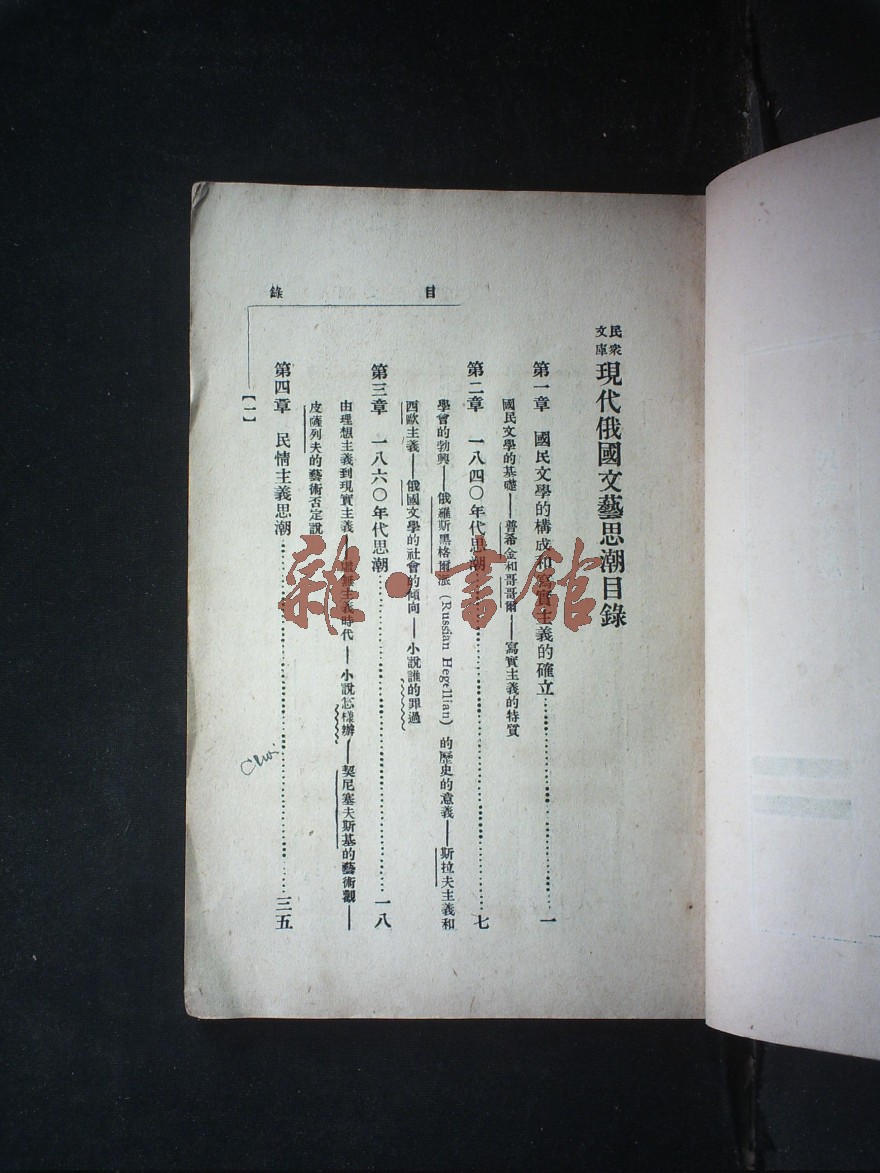 民衆文庫 現代俄國文藝思潮目錄
第一章 國民文學的構成和寫實主義的確立……一
國民文學的基礎——普希金和哥哥爾——寫實主義的特質
第二章 一八四〇年代思潮……七
學會的勃興——俄羅斯黑格爾派(Russian Hegellian)的歷史的意義——斯拉夫主義和
西歐主義——俄國文學的社會的傾向——小說誰的罪過
第三章 一八六〇年代思潮……一八
由理想主義到現實主義——虛無主義時代——小說怎樣辦——契尼塞夫斯基的藝術觀——
皮薩列夫的藝術否定說
第四章 民情主義思潮……三五
目錄
【一】
雜·書館